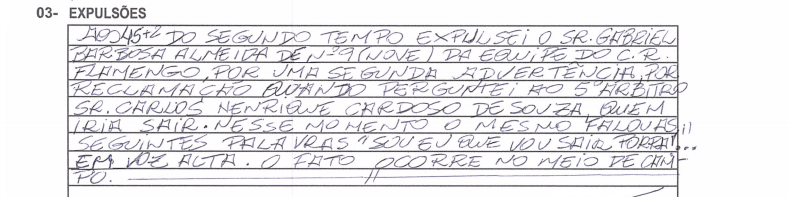 03- EXPULSÕES
AOS 45+2 DO SEGUNDO TEMPO EXPULSEI O SR. GABRIEL
BARBOSA ALMEIDA DE Nº9 (NOVE) DA EQUIPE DO C.R.
FLAMENGO, POR UMA SEGUNDA ADVERTÊNCIA, POR
RECLAMAÇÃO QUANDO PERGUNTEI AO 5º ÁRBITRO
SR. CARLOS HENRIQUE CARDOSO DE SOUZA, QUEM
IRIA SAIR. NESSE MOMENTO O MESMO FALOU AS
SEGUINTES PALAVRAS "SOU EU QUE VOU SAIR PORRA!..."
EM VOZ ALTA. O FATO OCORRE NO MEIO DE CAM-
PO.